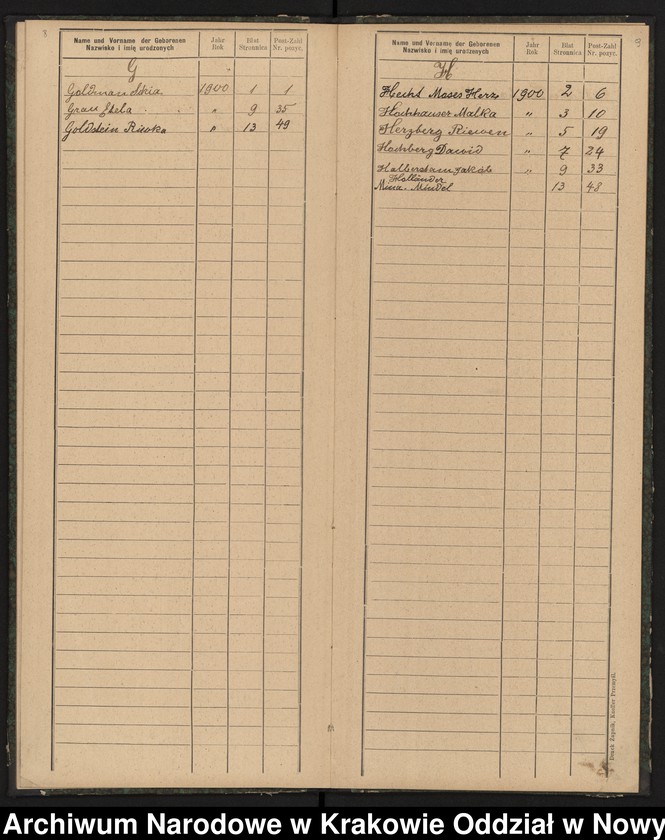 8
Name und Vorname der Geborenen
Nazwisko i imię urodzonych
Jahr
Rok
Blat
Stronnica
Post-Zahl
Nr. pozyc.
G
Goldman 1900 1 1
Grau Scheba " 9 35
Goldstein Riwka " 13 49
9
Name und Vorname der Geborenen
Nazwisko i imię urodzonych
Jahr
Rok
Blat
Stronnica
Post-Zahl
Nr. pozyc.
H
Hecht Moses Herz 1900 2 6
Hochhauser Malka " 3 10
Herzberg Riewen " 5 19
Hochberg Dawid " 7 24
Halberstam Jakób " 9 33
Holländer
Mindel 13 48
Druck Żupnik, Knoller Przemyśl.
Archiwum Narodowe w Krakowie Oddział w Nowy